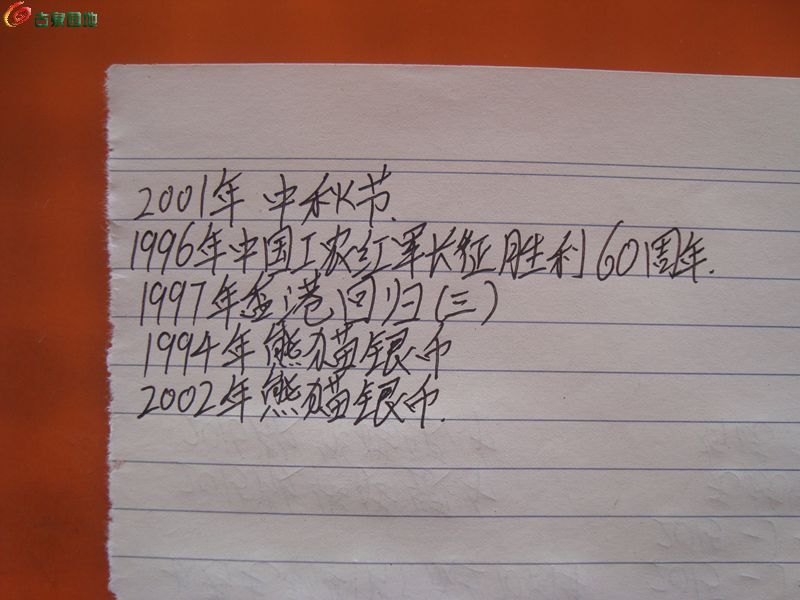 古泉园地
2001年 中秋节.
1996年中国工农红军长征胜利60周年.
1997年香港回归(三)
1994年熊猫银币
2002年熊猫银币.